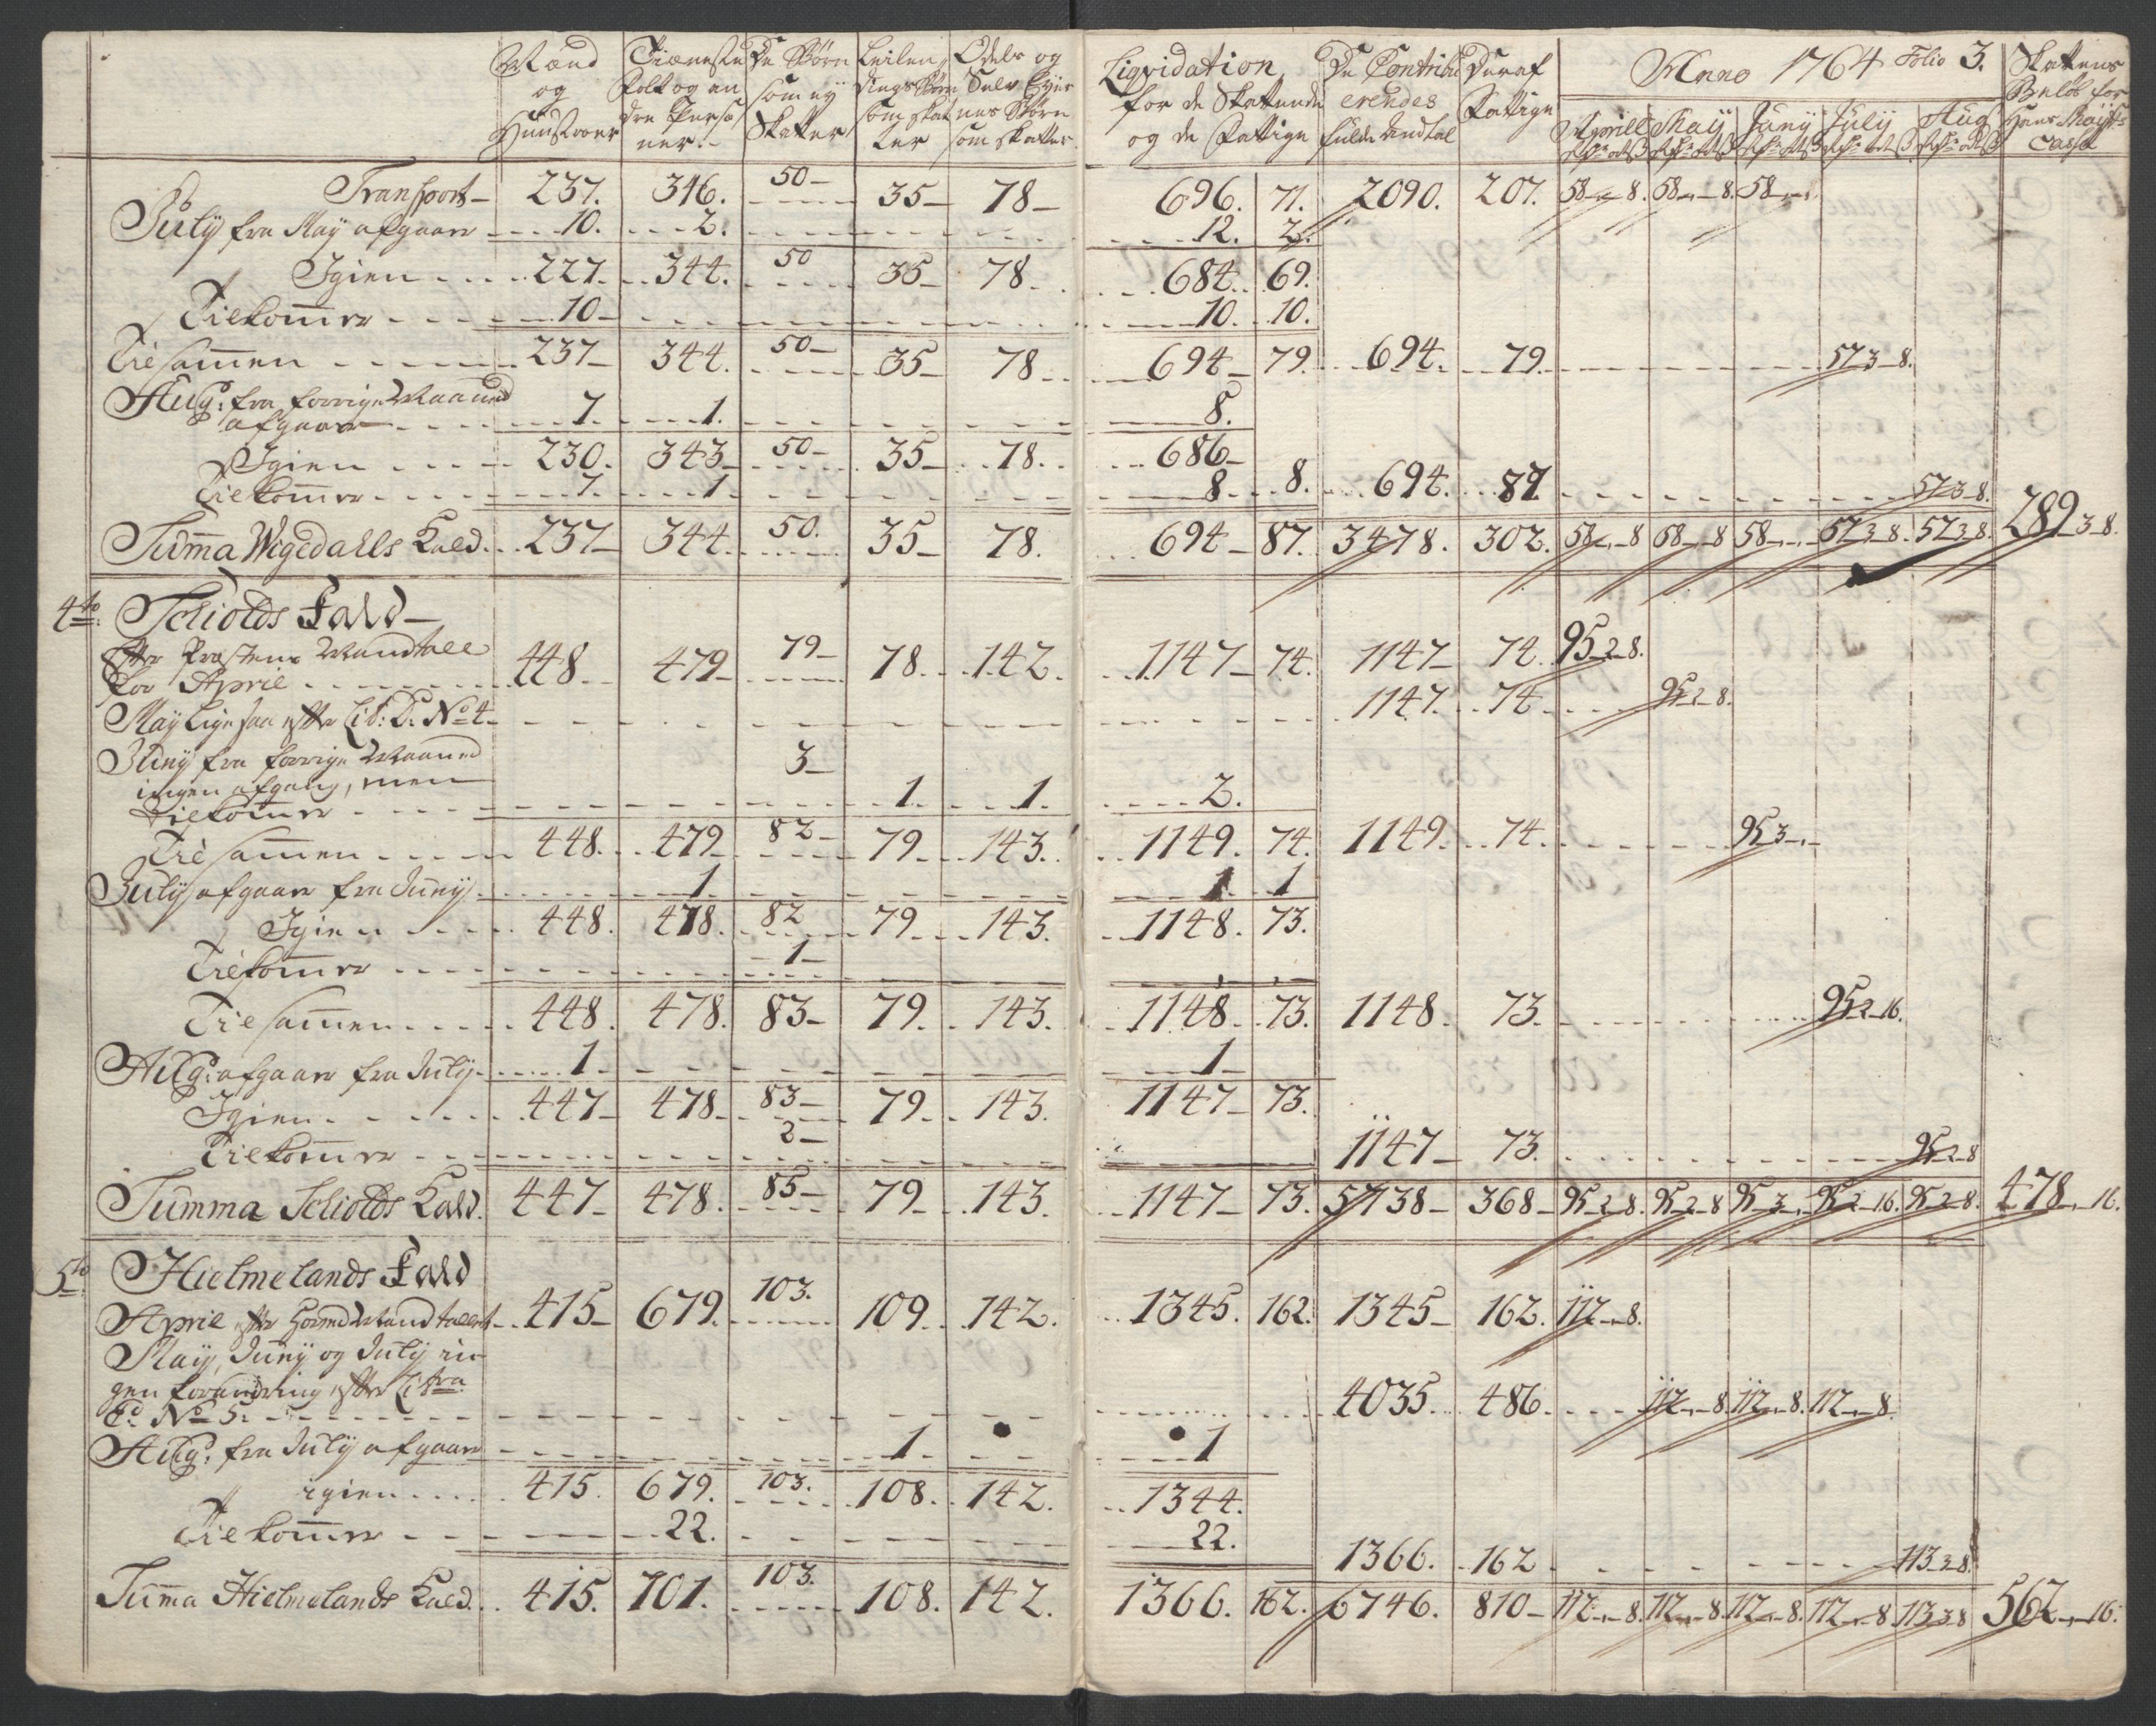 Mænd og Huustroer | Tieneste Folk og andre Persohner | De Börn som ey Skatter | Leilendings Börn som skatter | Odels og Selv Eyernes Börn som skatter | Liqvidation for de Skattende og de Fattige | De Contribuerendes fulde Andtal | Deraf Fattige | Anno 1764 Folio 3. | Skattens Belöb for Hans Mayts Cassa
Aprill | May | Juny | July | Aug
Transport 237. 346. 50 35 78 696. 71. 2090. 207. 58-„-8. 58-„-8. 58-„-„
July fra May afgaar 10. 2. 12. 2.
Igien 227. 344. 50 35 78. 684. 69.
Tilkommer 10 10. 10.
Tilsammen 237 344. 50 35 78 694 79. 694. 79. 57-3-8.
Aug: fra forrige Maaned
afgaar 7. 1. 8.
Igien 230. 343 50 35 78. 686
Tilkommer 7. 1 8 8. 694. 87. 57-3-8.
Summa Wigedahls Kald 237 344. 50. 35 78. 694 87. 3478. 302. 58-„-8 58-„-8 58-„-„ 57-3-8. 57-3-8. 289-3-8.
4to Schiolds Kald
Efter Præstens Mandtall
for April 448 479 79 78 142. 1147 74. 1147 74. 95-2-8.
May ligesaa efter Lit: D: No 4 1147. 74 95-2-8.
Juny fra forrige Maaned
ingen afgang, men
Tilkommer 3 1. 1. 2.
Tilsammen 448. 479 82 79 143. 1149. 74. 1149. 74. 95-3-„
July afgaar fra Juny 1 1 1
Igien 448. 478. 82 79 143. 1148. 73.
Tilkommer 1
Tilsammen 448. 478. 83 79. 143. 1148. 73. 1148. 73. 95-2-16.
Aug: afgaar fra July 1 1
Igien 447 478 83 79. 143. 1147 73.
Tilkommer 2 1147 73. 95-2-8
Summa Schiolds Kald. 447 478. 85 79 143. 1147 73. 5738 368 95-2-8. 95-2-8 95-3-„ 95-2-16. 95-2-8. 478-„-16.
5to Hielmelands Kald
April efter Hosmed Mandtallet 415 679. 103. 109. 142. 1345. 162. 1345 162. 112-„-8.
May, Juny og July in-
gen forandring efter Litra
D: No 5. 4035. 486. 112-„-8. 112-„-8. 112-„-8
Aug: fra July afgaar 1 1
igien 415. 679. 103. 108. 142. 1344.
Tilkommer 22. 22. 1366. 162 113-3-8.
Summa Hielmelands Kald 415. 701. 103. 108. 142. 1366. 162. 6746. 810 112-„-8. 112-„-8. 112-„-8. 112-„-8 113-3-8 562-„-16.